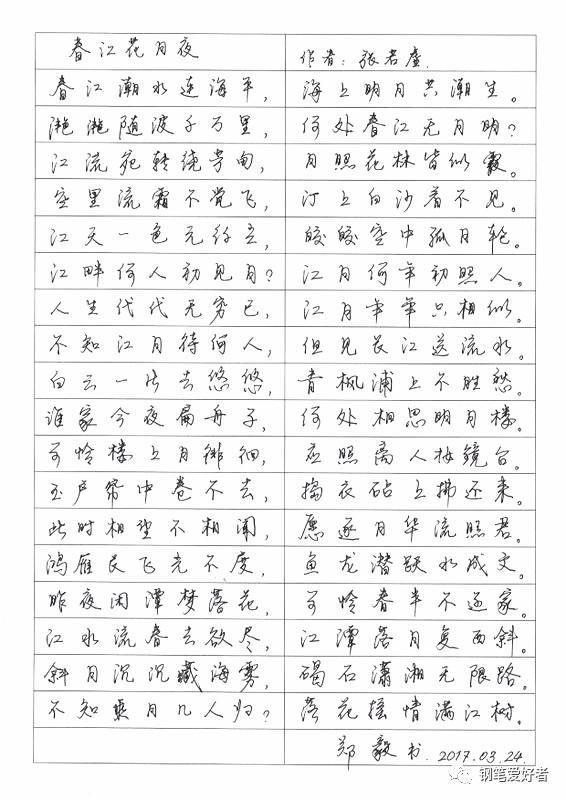 春江花月夜 作者：张若虚.
春江潮水连海平， 海上明月共潮生。
滟滟随波千万里， 何处春江无月明？
江流宛转绕芳甸， 月照花林皆似霰。
空里流霜不觉飞， 汀上白沙看不见。
江天一色无纤尘， 皎皎空中孤月轮。
江畔何人初见月？ 江月何年初照人。
人生代代无穷已， 江月年年只相似。
不知江月待何人， 但见长江送流水。
白云一片去悠悠， 青枫浦上不胜愁。
谁家今夜扁舟子， 何处相思明月楼。
可怜楼上月徘徊， 应照离人妆镜台。
玉户帘中卷不去， 捣衣砧上拂还来。
此时相望不相闻， 愿逐月华流照君。
鸿雁长飞光不度， 鱼龙潜跃水成文。
昨夜闲潭梦落花， 可怜春半不还家。
江水流春去欲尽， 江潭落月复西斜。
斜月沉沉藏海雾， 碣石潇湘无限路。
不知乘月几人归？ 落花摇情满江树。
郑毅书.2017.03.24.
钢笔爱好者